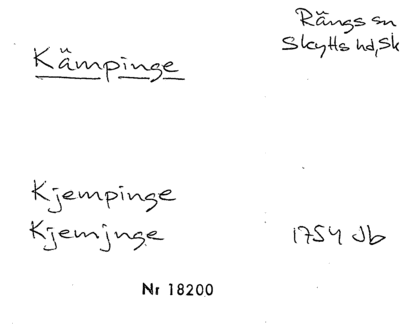 Rängs sn
Kämpinge
Skytts hd, Sk
Kjempinge
Kjemjnge 1754 Jb
Nr 18200